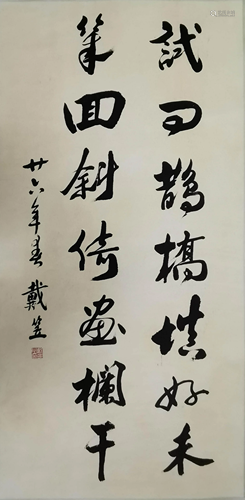 試問鵲橋填好未
幾回斜倚畫欄干
廿六年春 戴笠